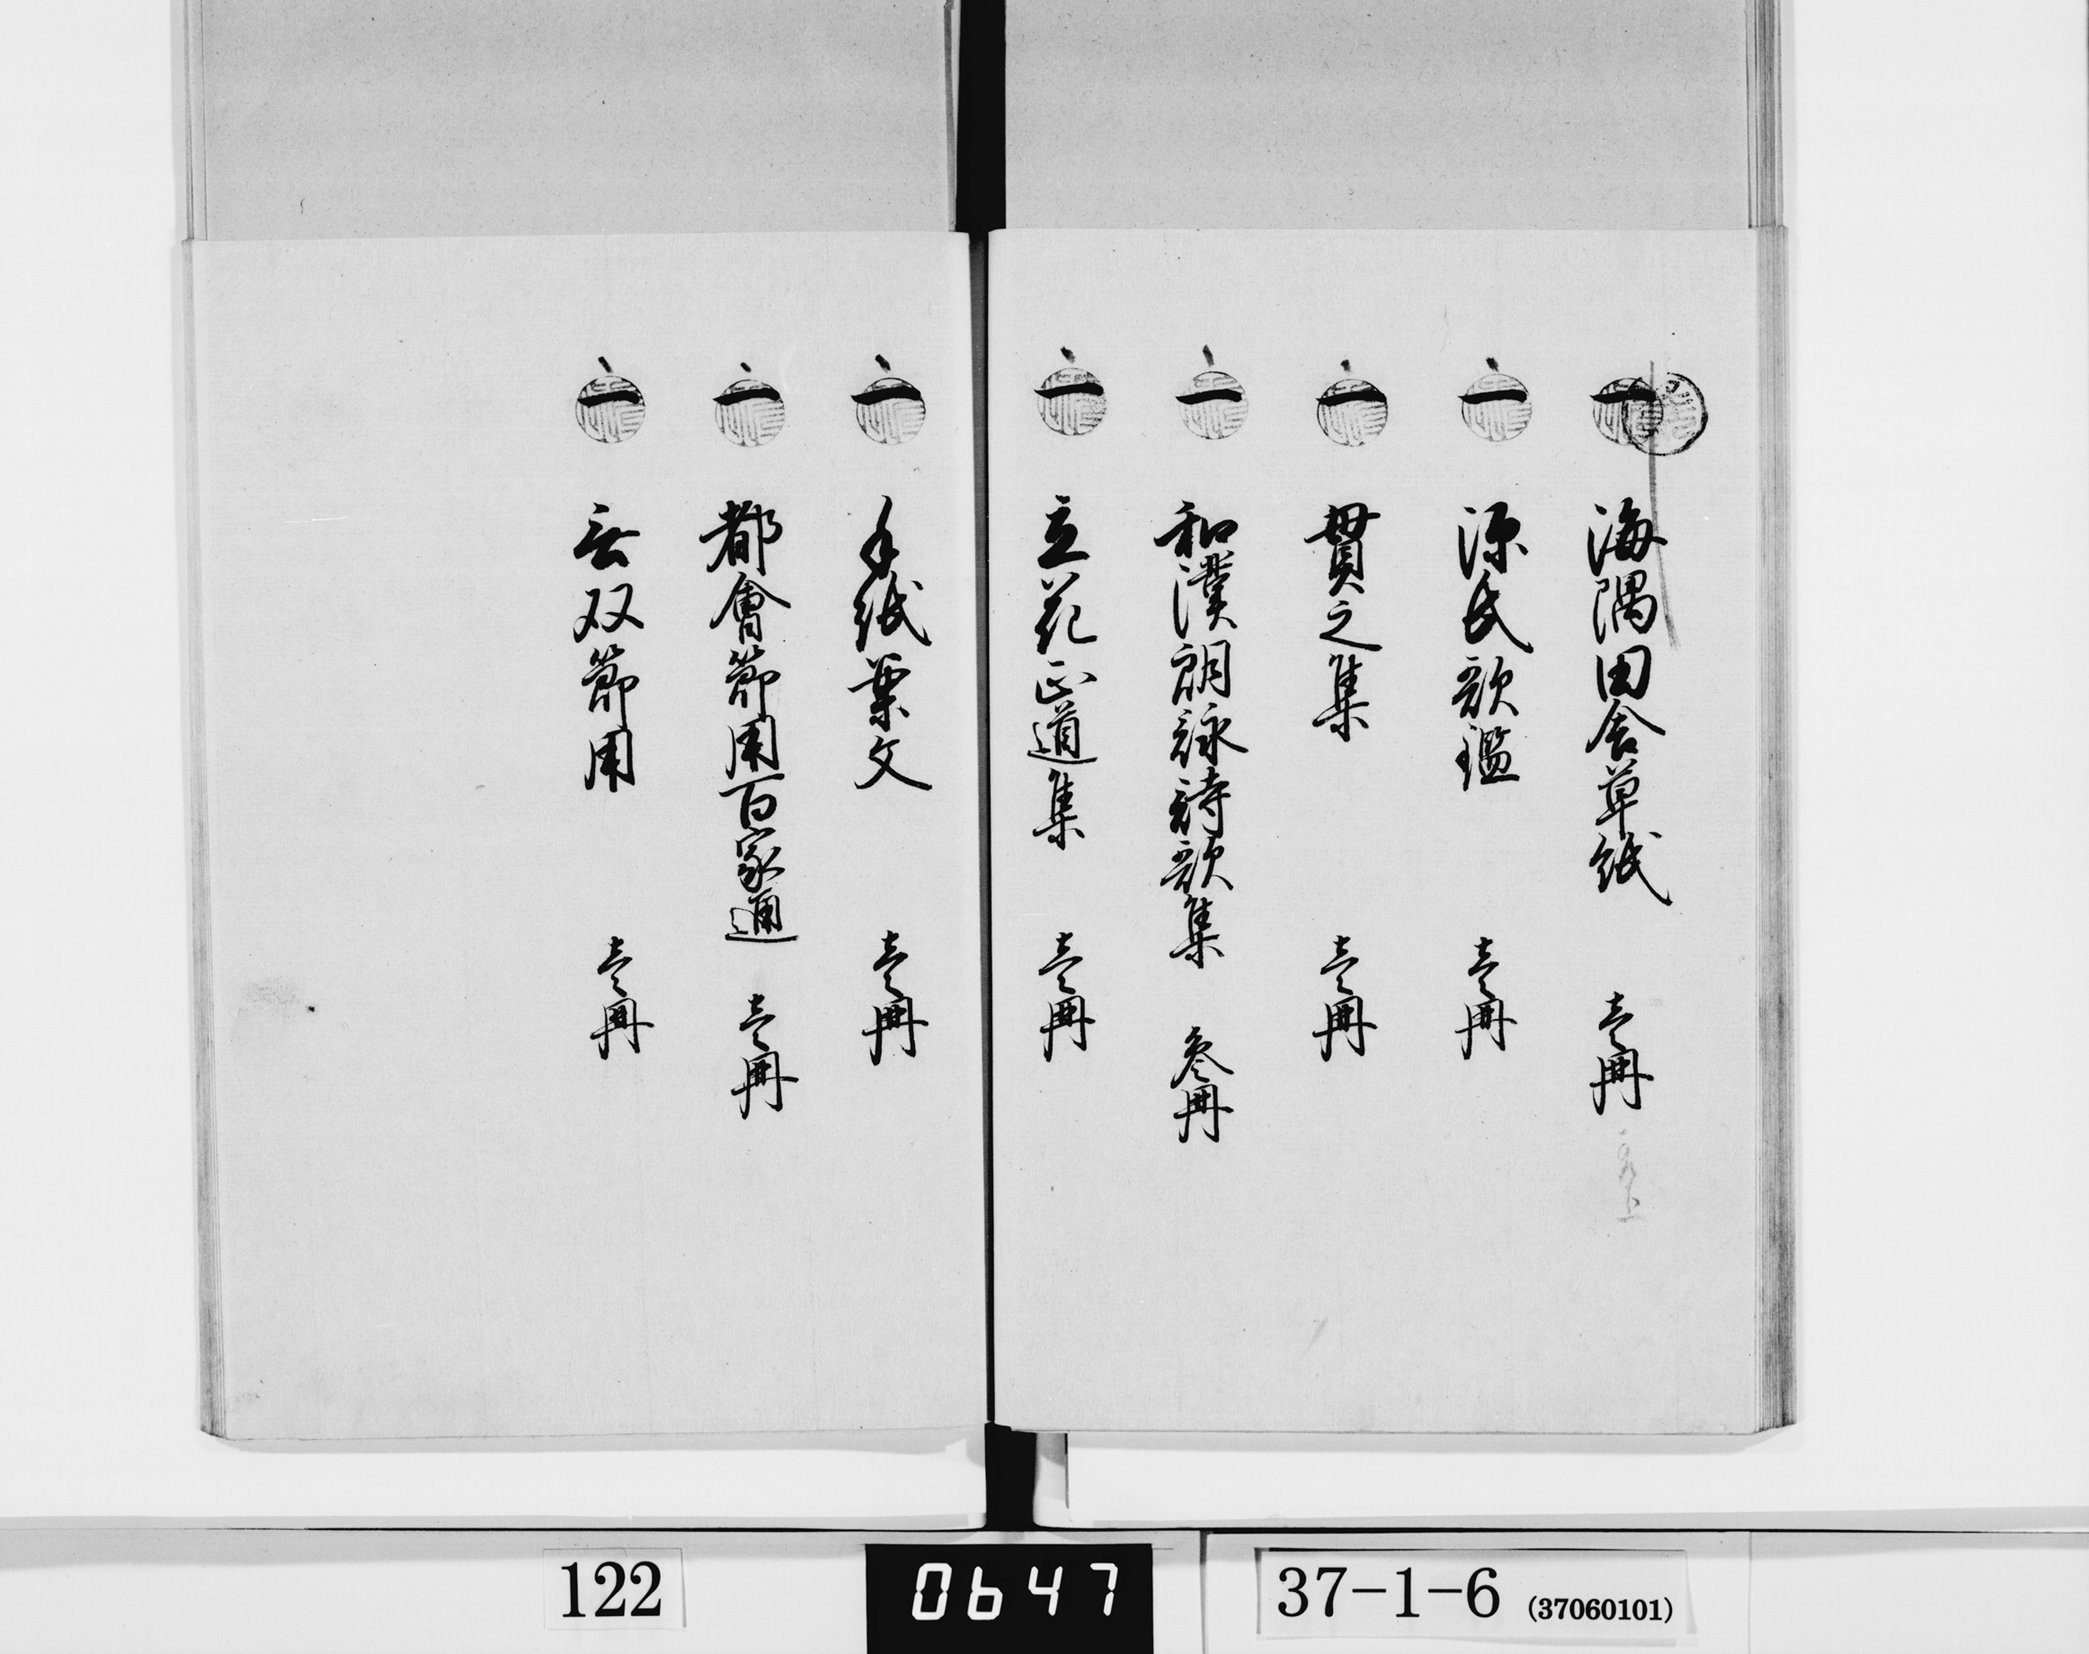 一 海隅田舎草紙 壱冊
一 源氏歌鑑 壱冊
一 貫之集 壱冊
一 和漢朗詠詩歌集 参冊
一 立花正道集 壱冊
一 手紙案文 壱冊
一 都會節用百家通 壱冊
一 無双節用 壱冊
122
0647
37-1-6 (37060101)